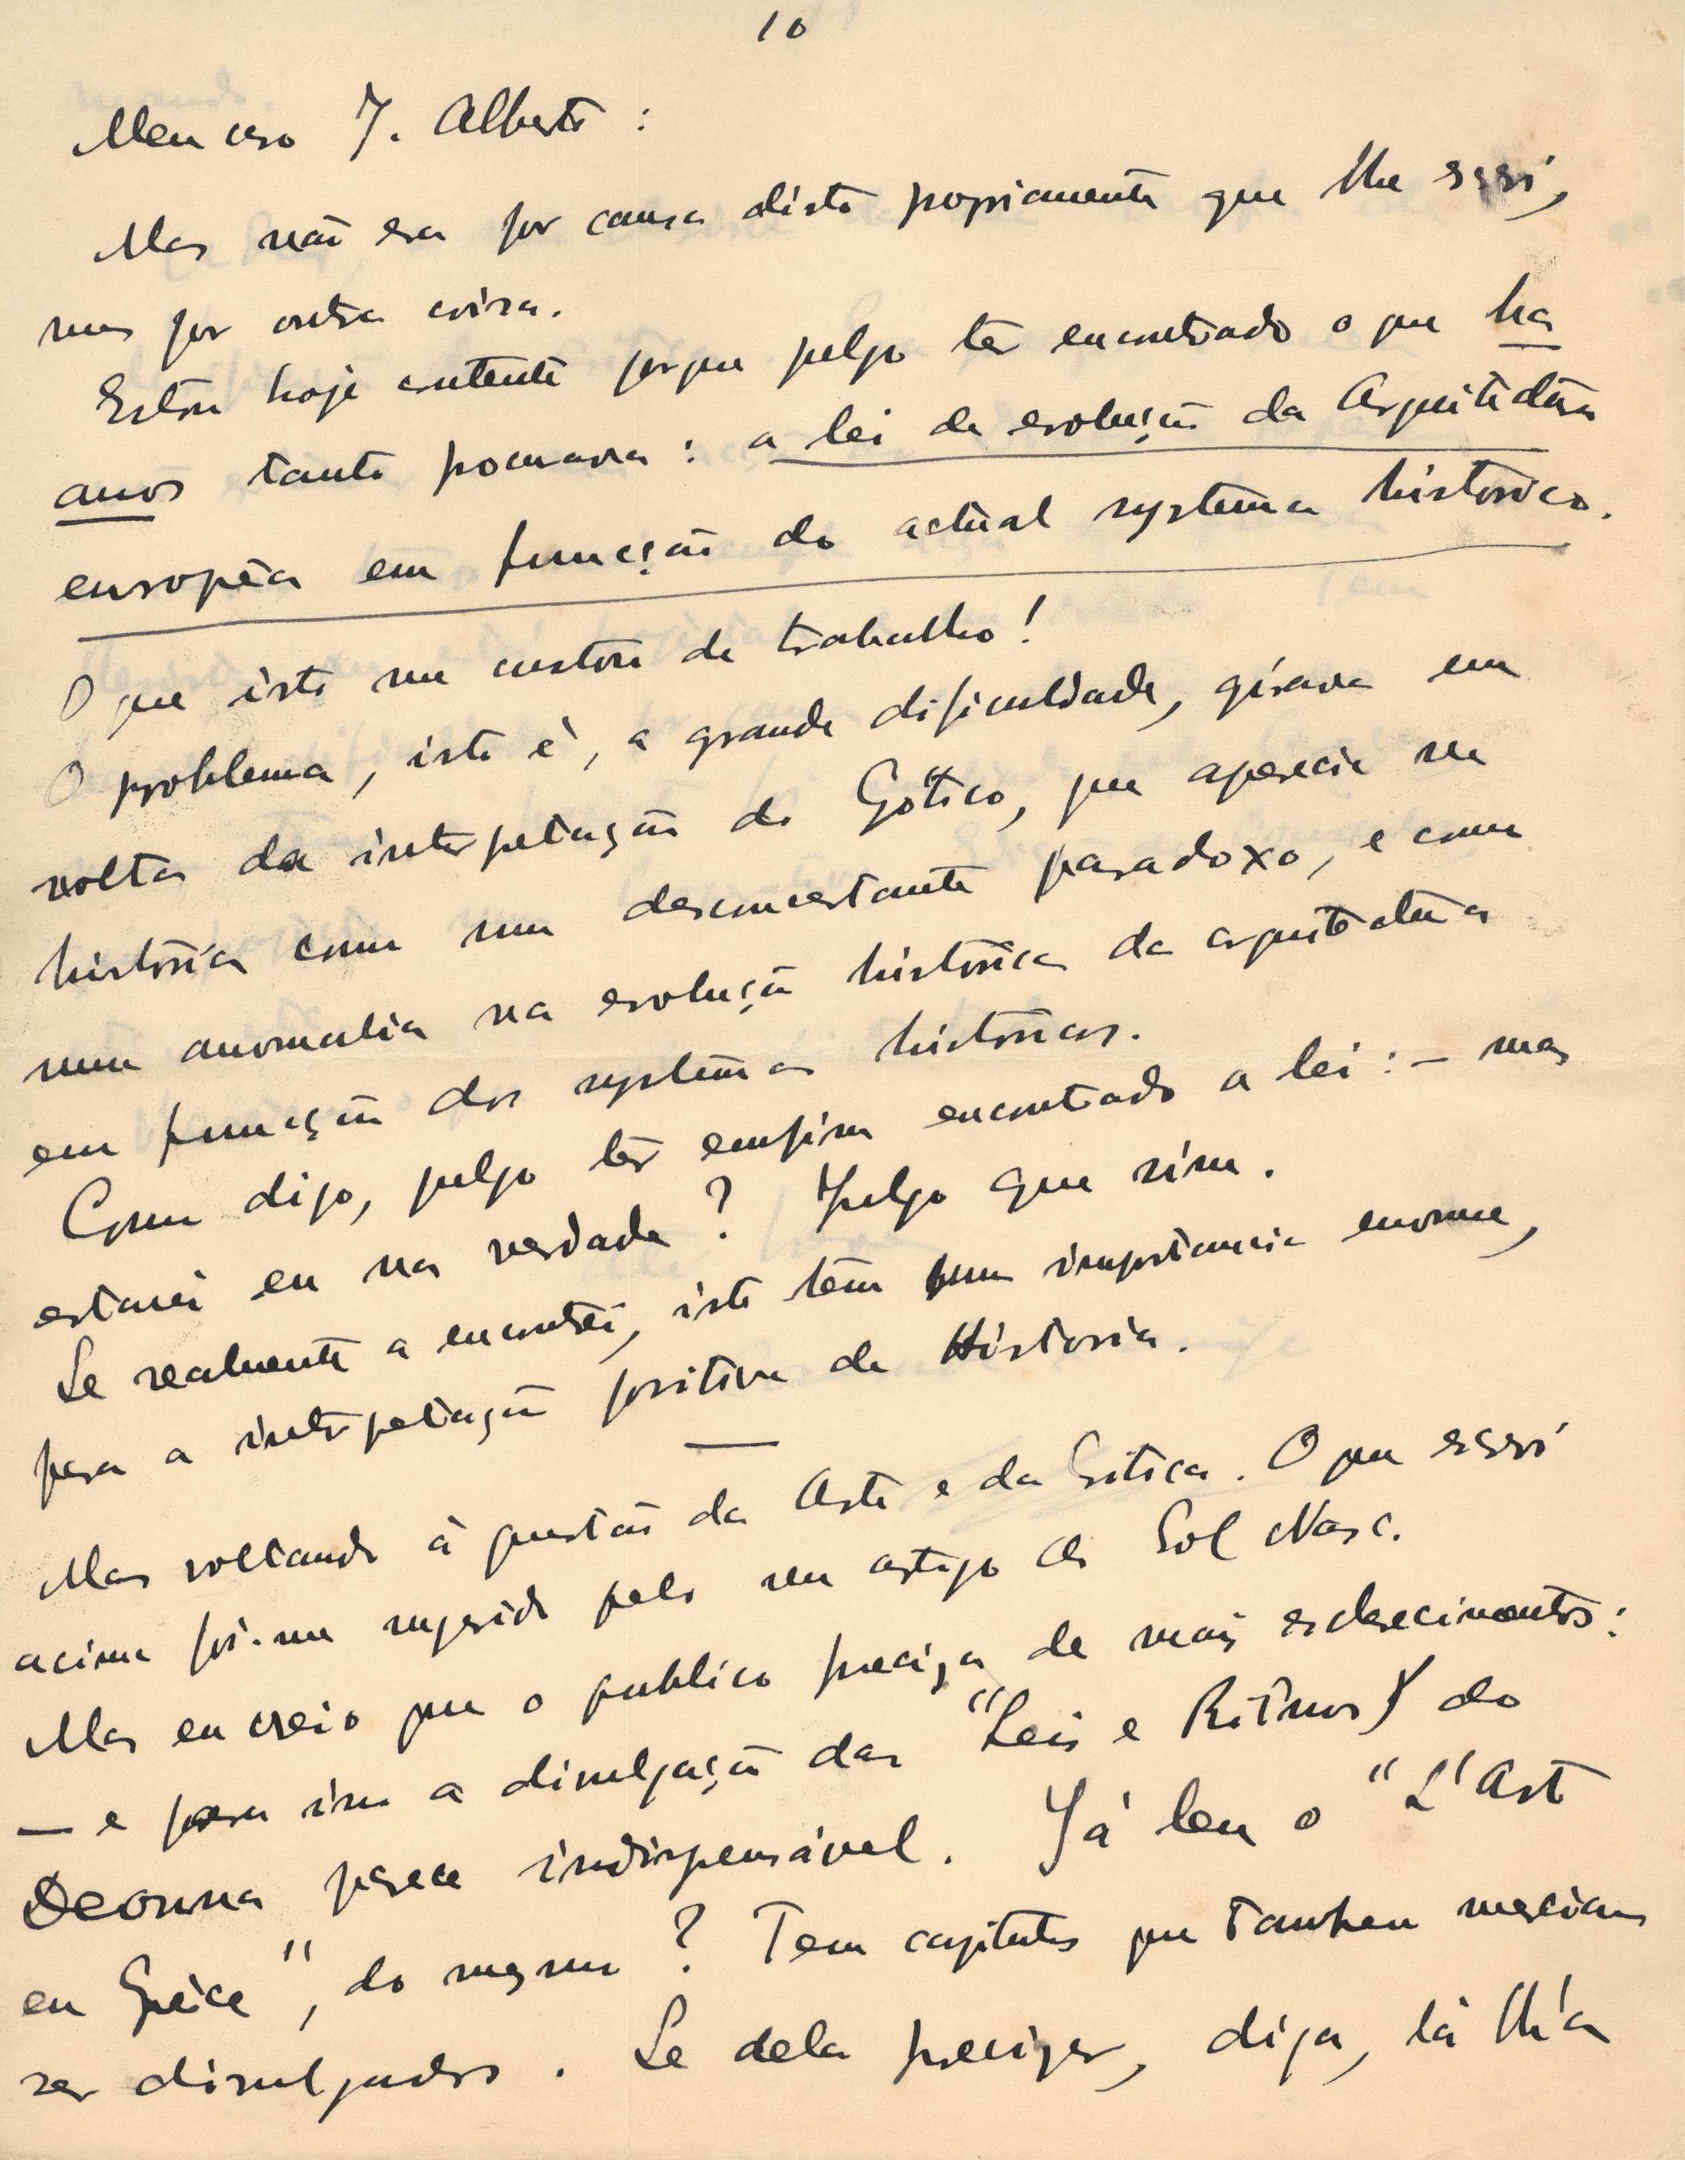 10
Meu caro J. Alberto:
Mas não era por causa disto propriamente que lhe escrevi,
mas por outra coisa.
Estou hoje contente porque julgo ter encontrado o que ha
anos tanto procurava: a lei de evolução da Arquitectura
europêa em funcção do actual systema historico.
O que isto me custou de trabalho!
O problema, isto é, a grande dificuldade, girava em
volta da interpretação do Gotico, que aparecia na
história como um desconcertante paradoxo, e como
uma anomalia na evolução histórica da arquitectura
em funcção dos systemas históricos.
Como digo, julgo ter emfim encontrado a lei: – mas
estarei eu na verdade? Julgo que sim.
Se realmente a encontrei, isto tem uma importancia enorme,
para a interpretação positiva da Historia.
Mas voltando à questão da Arte e da Critica. O que escrevi
acima foi-me sugerido pelo seu artigo do Sol Nasc.
Mas eu creio que o publico precisa de mais esclarecimentos:
— e para isso a divulgação das "Leis e Ritmos" do
Deonna parece indispensável. Já leu o "L'Art
en Grèce", do mesmo? Tem capitulos que tambem mereciam
ser divulgados. Se dela precisar, diga, lá lh'a